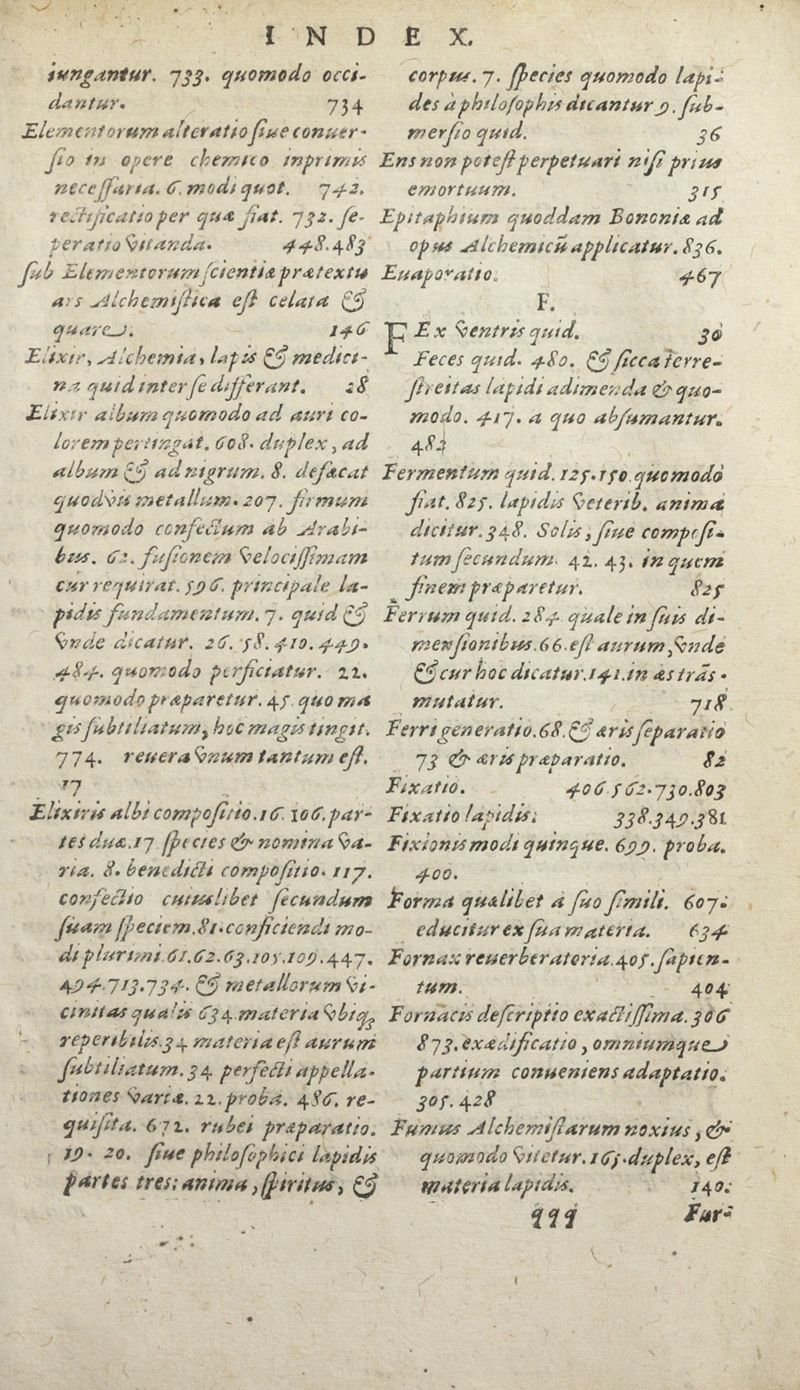 INDEX.
iungantur. 733. quomodo occi-
dantur. 734
Elementorum alteratio siue conuer-
sio in opere chemico inprimis
necessaria. 6. modi quot. 742.
rectificatio per quæ fiat. 732. se-
peratio vitanda. 448.483
sub Elementorum scientiæ prætextu
ars Alchemistica est celata &
quare. 146
Elixir, Alchemia, lapis & medici-
na quid inter se differant. 28
Elixir album quomodo ad auri co-
lorem pertingat. 608. duplex, ad
album & ad nigrum. 8. defæcat
quodvis metallum. 207. firmum
quomodo confectum ab Arabi-
bus. 62. fusionem velocissimam
cur requirat. 596. principale la-
pidis fundamentum. 7. quid &
vnde dicatur. 26. 58. 410. 449.
484. quomodo perficiatur. 22.
quomodo præparetur. 45. quo ma
gis subtiliatum, hoc magis tingit.
774. reuera vnum tantum est.
17
Elixiris albi compositio. 16. 106. par-
tes duæ. 17 species & nomina va-
ria. 8. benedicti compositio. 117.
confectio cuiuslibet secundum
suam speciem. 81. conficiendi mo-
di plurimi. 61.62.63.105.109.447.
494.713.734. & metallorum vi-
cinitas qualis 634. materia vbiq;
reperibilis. 34 materia est aurum
subtiliatum. 34 perfecti appella-
tiones variæ. 22. proba. 486. re-
quisita. 672. rubei præparatio.
19. 20. siue philosophici lapidis
partes tres: anima, spiritus, &
corpus. 7. species quomodo lapi-
des à philosophis dicantur 9. sub-
mersio quid. 36
Ens non potest perpetuari nisi prius
emortuum. 315
Epitaphium quoddam Bononiæ ad
opus Alchemicũ applicatur. 836.
Euaporatio. 467
F.
FEx ventris quid. 30
Feces quid. 480. & sicca terre-
streitas lapidi adimenda & quo-
modo. 417. a quo absumantur.
482
Fermentum quid. 125. 150. quomodo
fiat. 825. lapidis veterib. anima
dicitur. 348. Solis, siue composi-
tum secundum. 42. 43. in quem
finem præparetur. 825
Ferrum quid. 284. quale in suis di-
mensionibus. 66. est aurum, vnde
& cur hoc dicatur. 141. in æs trãs-
mutatur. 718
Ferri generatio. 68. & æris separatio
73 & æris præparatio. 82
Fixatio. 406.562.730.803
Fixatio lapidis. 338.349.381
Fixionis modi quinque. 699. proba.
400.
Forma quælibet a suo simili. 607.
educitur ex sua materia. 634
Fornax reuerberatoria. 405. sapien-
tum. 404
Fornacis descriptio exactissima. 306
873. exædificatio, omniumque
partium conueniens adaptatio.
305. 428
Fumus Alchemistarum noxius, &
quomodo vitetur. 165. duplex, est
materia lapidis. 140.
qqq Fur-